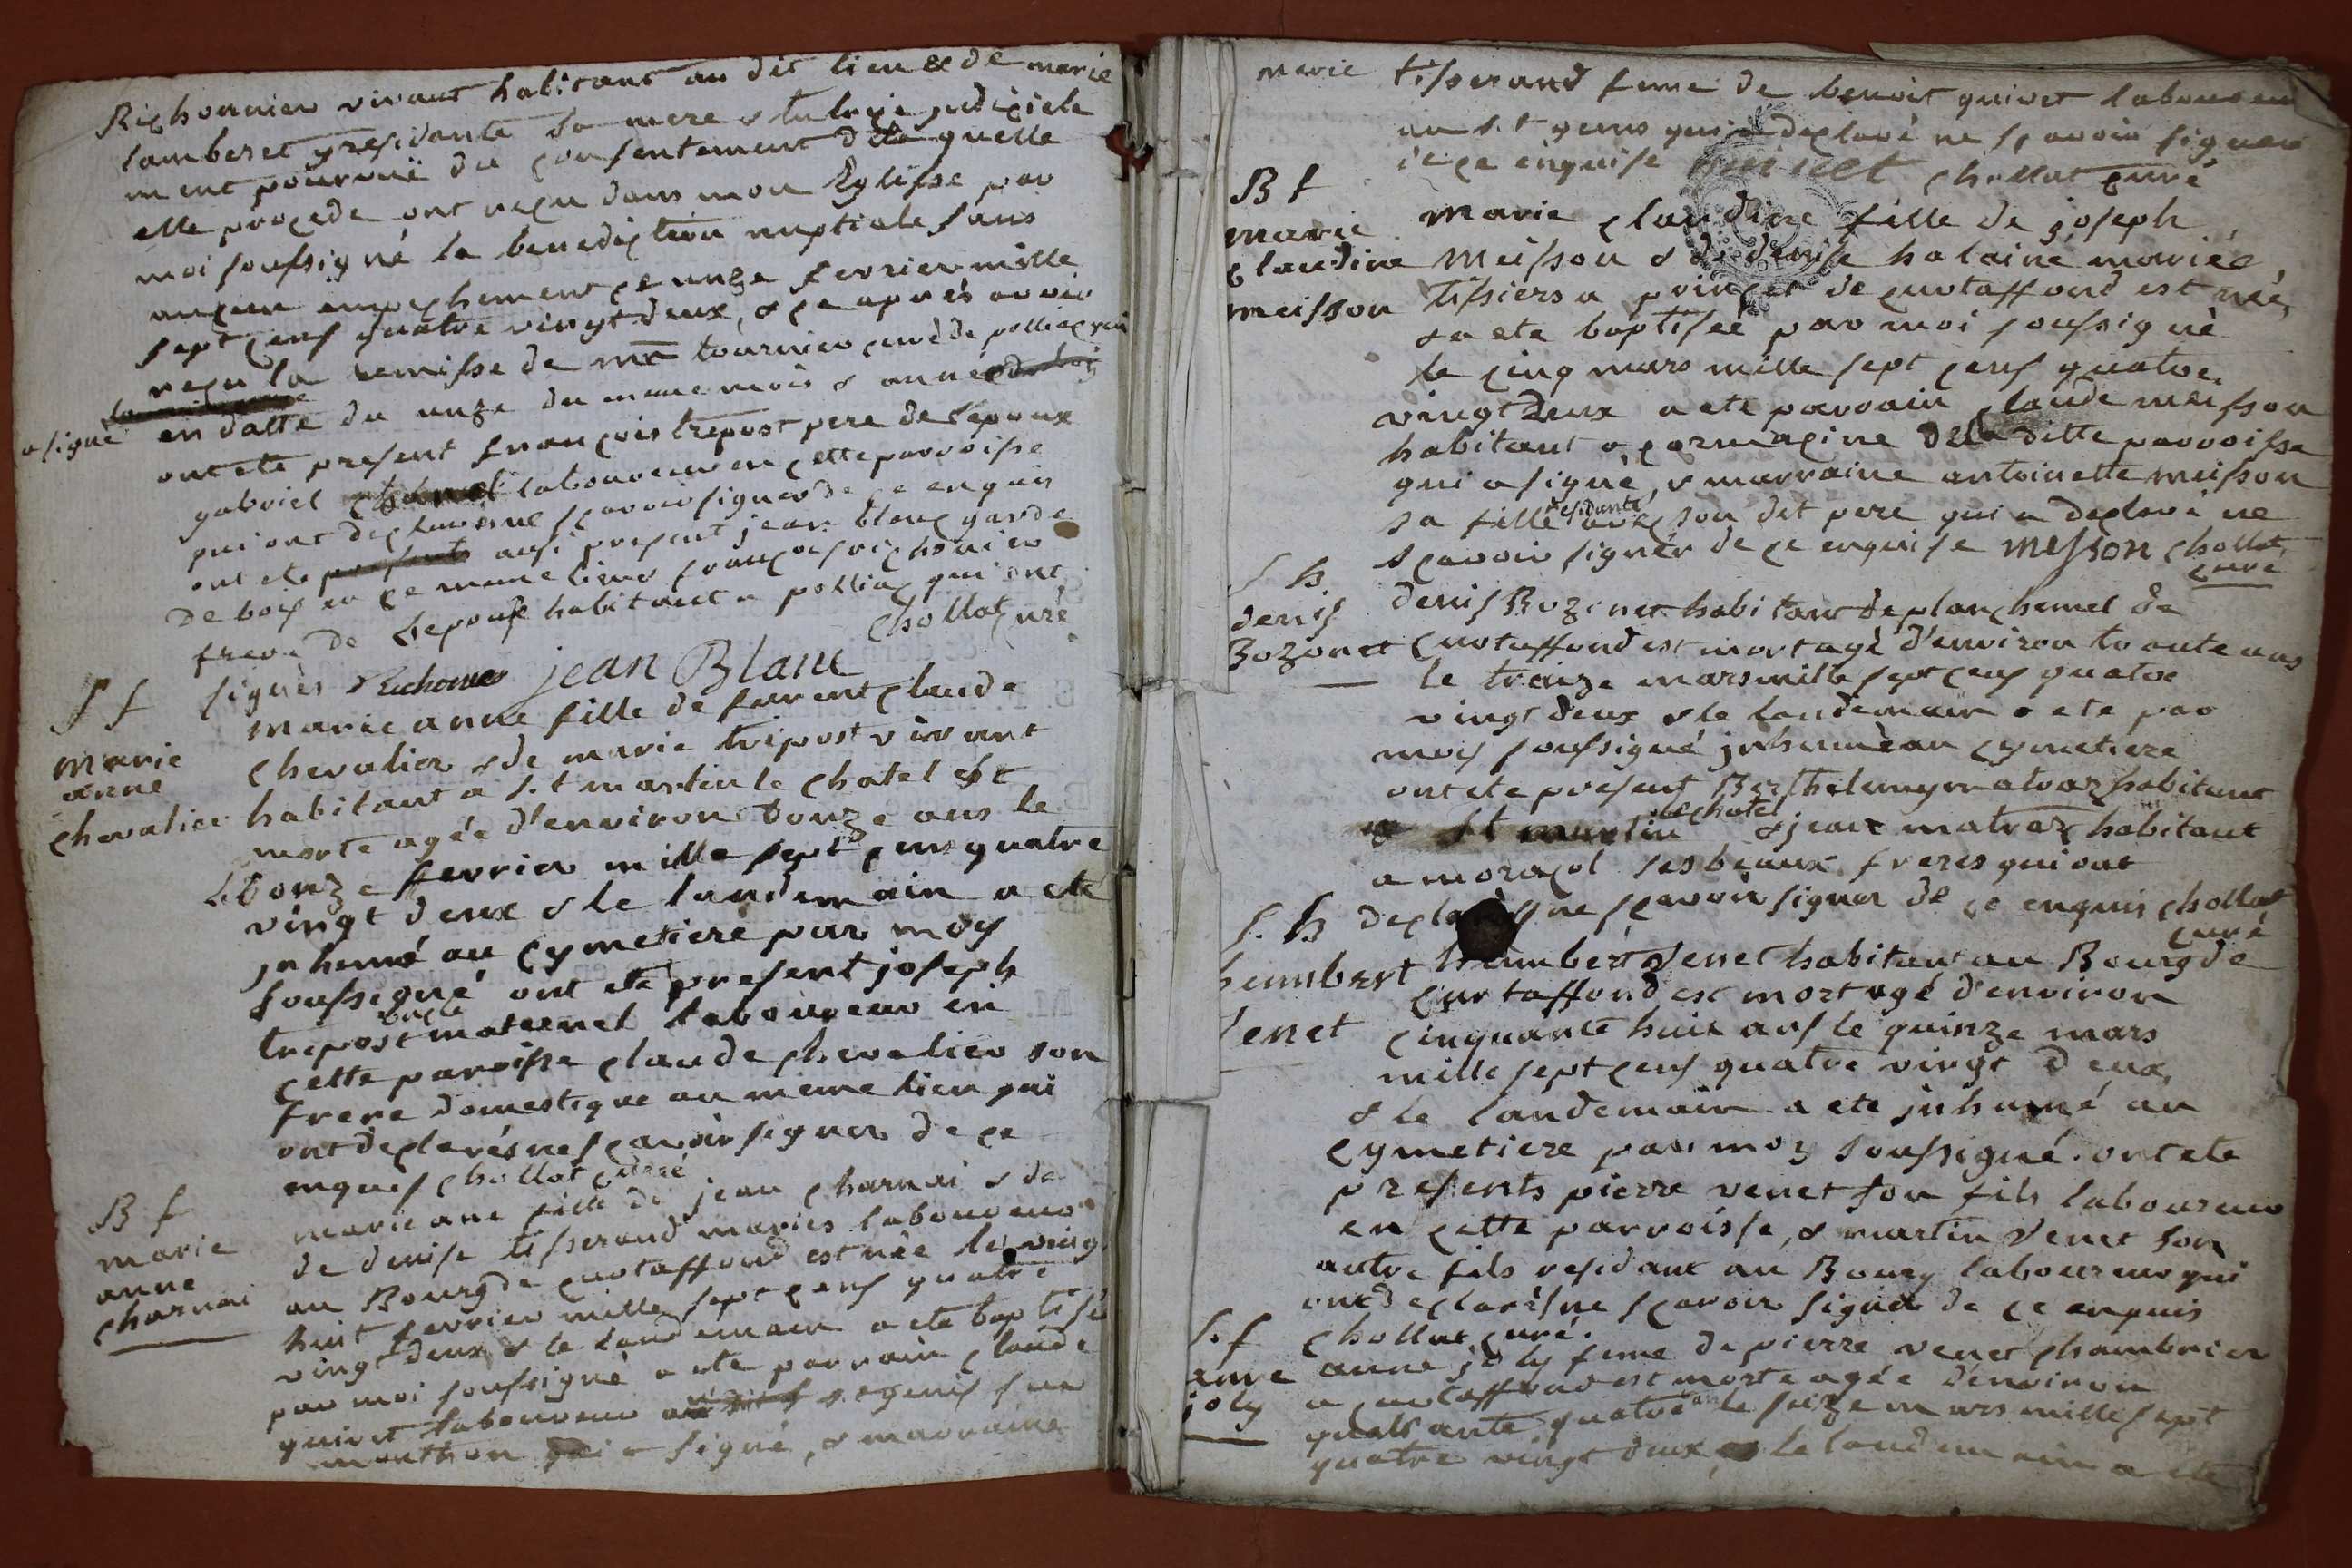 Richonnier vivant habitant au dit lieu & de marie
lamberet y residante sa mere & tutrice judiciele
ment pourvuë du consentement de la quelle
elle procede ont reçu dans mon Eglisse par
moi soussigné la benediction nuptiale sans
aucun empechement ce unze fevrier mille
sept cens quatre vingt deux, & ce aprés avoir
reçu la remisse de mre tournier curé de polliac
en datte du unze du meme mois & année
a signé
ont ete present françois trepost pere de l'epoux
gabriel laboureur en cette parroisse
qui ont declaré ne scavoir signer de ce enquis
ont ete aussi present jean blanc garde
de bois en ce meme lieu & françois richonier
frere de l'epouse habitant a polliac qui ont
signès Richonier jean Blanc chollat curé
S f
marie
anne
chevalier
marie anne fille de furent claude
chevalier & de marie tripost vivant
habitant a s.t martin le chatel est
morte agée d'environ douze ans le
douze fevrier mille sept cens quatre
vingt deux & le landemain a eté
jnhumé au cymetiere par moy
soussigné ont ete present joseph
tripost oncle maternel laboureur en
cette paroisse claude chevalier son
frere domestique au meme lieu qui
ont declarés ne scavoir signer de ce
enquis chollat curé
B f
marie
anne
charnai
marie ane fille de jean charnai & de
de denise tisserand mariés laboureur
au Bourg de curtaffond est née le vingt
huit fevrier mille sept cens quatre
vingt deux & le landemain a ete baptisée
par moi soussigné a ete parrain claude
quivet laboureur a s.t genis sur
menthon qui a signé, & marraine
marie tisserand feme de benoit quivet laboureur
au s.t genis qui a declaré ne scavoir signer
de ce enquise quivet chollat curé
B f
marie
claudine
meisson
marie claudine fille de joseph
meisson & de denise halainé mariés
tissiers a princet de curtaffond est née,
& a ete baptisée par moi soussigné
le cinq mars mille sept cens quatre
vingt deux a ete parrain claude meisson
habitant a cormacine de la ditte parroisse
qui a signé, & marraine antoinette meisson
sa fille residante avec son dit pere qui a declaré ne
scavoir signer de ce enquise messon chollat
curé
S h
denis
Bozonet
denis Bozonet habitant de planchemel de
curtaffond est mort agé d'environ trante ans
le traize mars mille sept cens quatre
vingt deux & le landemain a ete par
moy soussigné jnhumé au cymetiere
ont ete present Berthelemy matraz habitant
a st martin le chatel & jean matraz habitant
a moracol ses beaux freres qui ont
declarés ne scavoir signer de ce enquis chollat
curé
S. h
humbert
Venet
humbert Venet habitant au Bourg de
curtaffond est mort agé d'environ
cinquante huit ans le quinze mars
mille sept cens quatre vingt deux,
& le landemain a ete jnhumé au
cymetiere par moy soussigné. ont ete
presents pierre venet son fils laboureur
en cette parroisse, & martin Venet son
autre fils residant au Bourg laboureur qui
ont declarés ne scavoir signer de ce enquis
chollat curé.
S. f
anne
joly
anne joly feme de pierre venet chambrier
a curtaffond est morte agée d'environ
quatrante quatre ans le seize mars mille sept
quatre vingt deux, & le landemain a ete